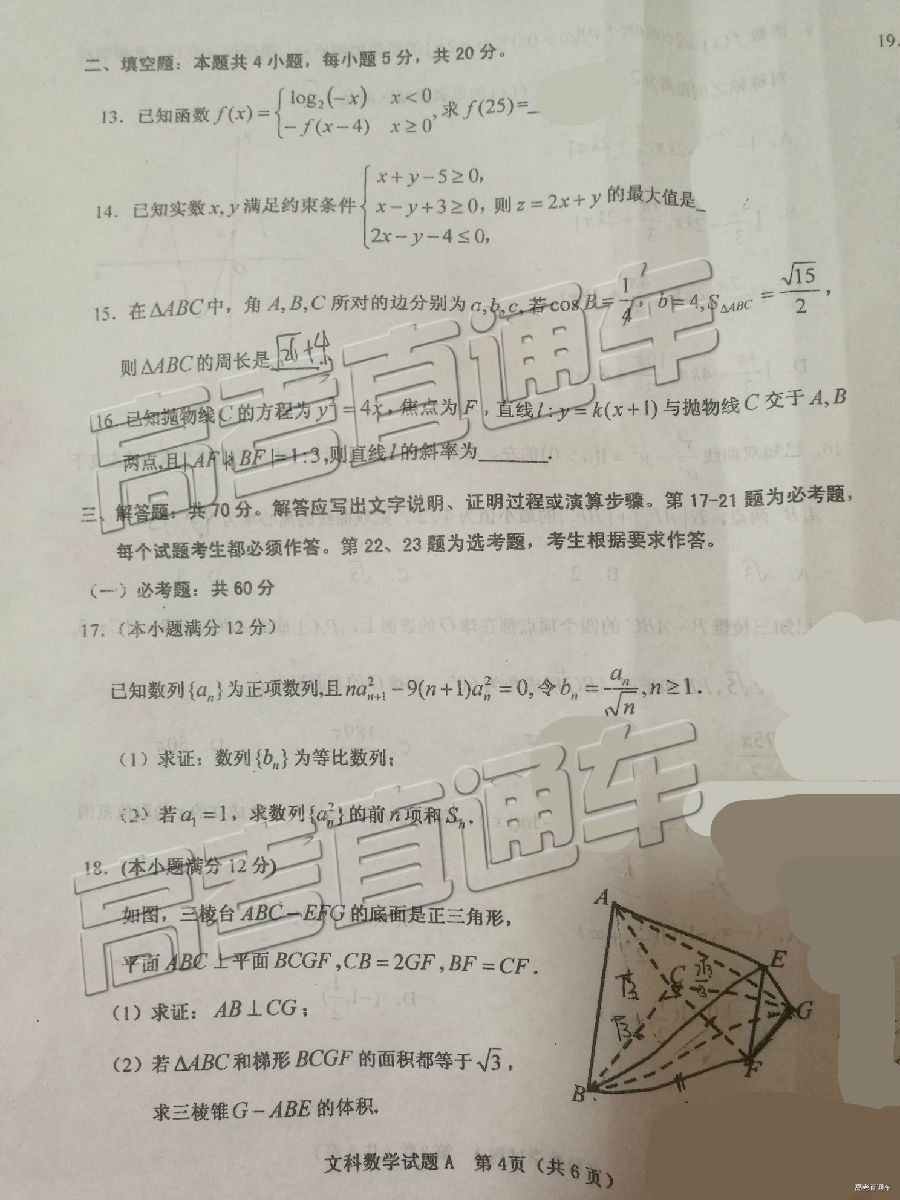 19.
二、填空题：本题共4小题，每小题5分，共20分。
13．已知函数 f(x)={log₂(−x) x<0; −f(x−4) x≥0, 求 f(25)=_
14．已知实数 x,y 满足约束条件 {x+y−5≥0, x−y+3≥0, 2x−y−4≤0, 则 z=2x+y 的最大值是_
15．在 ΔABC 中，角 A,B,C 所对的边分别为 a,b,c, 若 cos B=1/4，b=4, S_ΔABC=√15/2，
则 ΔABC 的周长是 √26+4 .
16. 已知抛物线 C 的方程为 y²=4x，焦点为 F，直线 l:y=k(x+1) 与抛物线 C 交于 A,B
两点,且|AF|:|BF|=1:3,则直线 l 的斜率为______.
三、解答题：共70分。解答应写出文字说明、证明过程或演算步骤。第17-21题为必考题，
每个试题考生都必须作答。第22、23题为选考题，考生根据要求作答。
（一）必考题：共60分
17.（本小题满分12分）
已知数列{aₙ}为正项数列,且 naₙ₊₁²−9(n+1)aₙ²=0, 令 bₙ=aₙ/√n, n≥1.
（1）求证：数列{bₙ}为等比数列；
（2）若 a₁=1，求数列{aₙ²}的前 n 项和 Sₙ.
18.(本小题满分12分)
如图，三棱台 ABC−EFG 的底面是正三角形，
平面 ABC⊥平面 BCGF, CB=2GF, BF=CF.
（1）求证： AB⊥CG；
（2）若 ΔABC 和梯形 BCGF 的面积都等于 √3，
求三棱锥 G−ABE 的体积.
A
E
C
G
F
B
文科数学试题A 第4页（共6页）
高考直通车
高考直通车
高考直通车